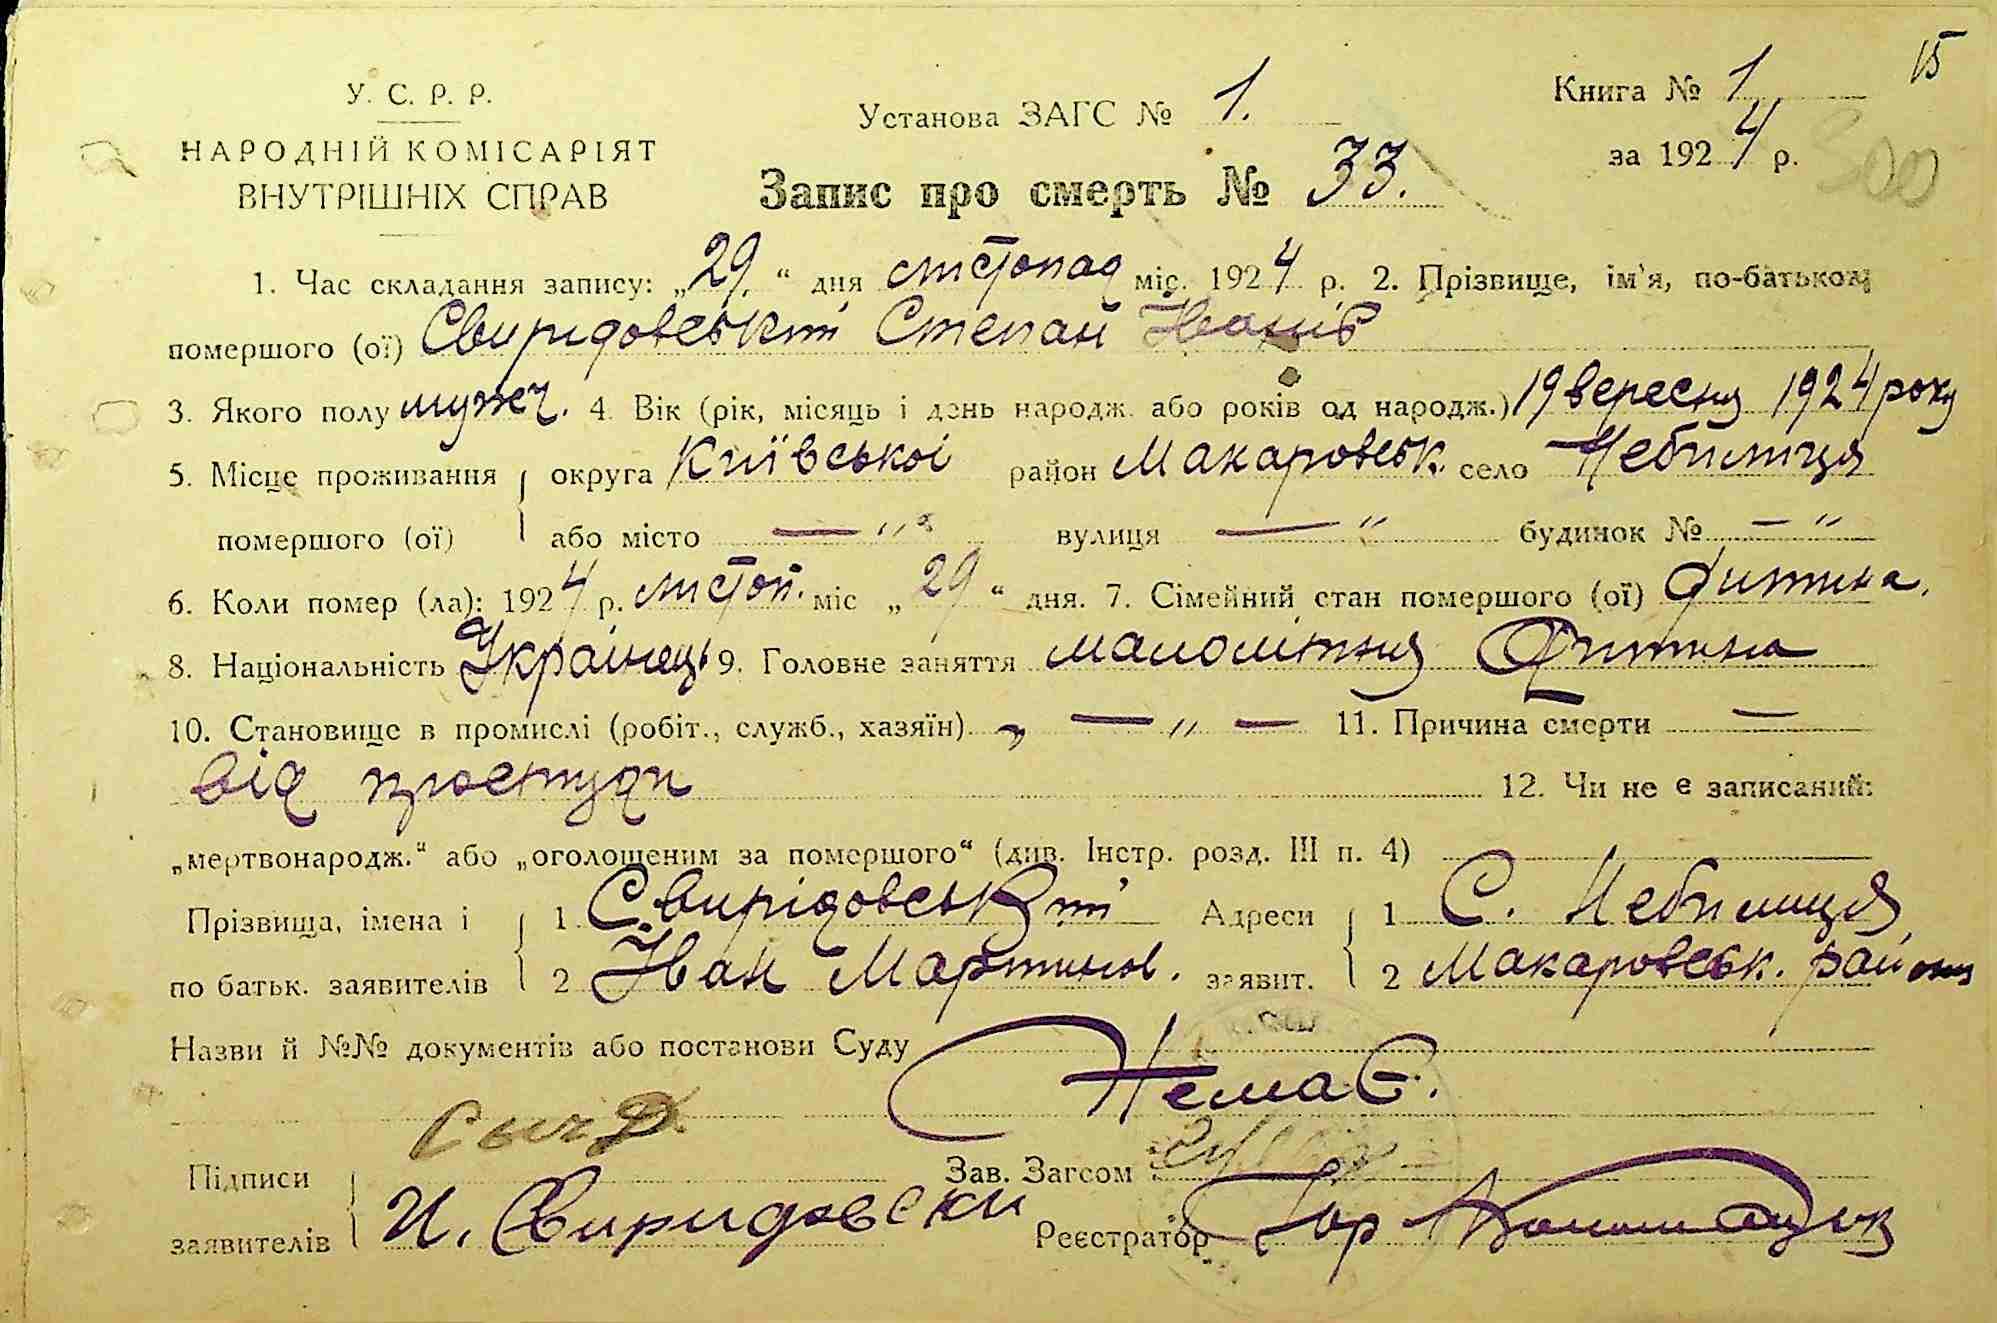 15
У. С. Р. Р.
НАРОДНІЙ КОМІСАРІЯТ
ВНУТРІШНІХ СПРАВ
Установа ЗАГС № 1.
Книга № 1
за 1924 р.
300
Запис про смерть № 33.
1. Час складання запису: „29“ дня листопад міс. 1924 р. 2. Прізвище, ім'я, по-батькові
помершого (ої) Свирідовський Степан Іванів
3. Якого полу мужеч. 4. Вік (рік, місяць і день народж. або років од народж.) 19 вересня 1924 року
5. Місце проживання помершого (ої) округа Київської район Макаровськ. село Небилиця
або місто — „ вулиця — „ будинок № — „
6. Коли помер (ла): 1924 р. листоп. міс „29“ дня. 7. Сімейний стан помершого (ої) дитина.
8. Національність Українець 9. Головне заняття малолітня дитина
10. Становище в промислі (робіт., служб., хазяїн) — „ — 11. Причина смерти —
від простуди 12. Чи не є записаний:
„мертвонародж.“ або „оголошеним за помершого“ (див. Інстр. розд. III п. 4)
Прізвища, імена і 1 Свирідовський Адреси 1 С. Небилиця
по батьк. заявителів 2 Іван Мартинов. заявит. 2 Макаровськ. району
Назви й №№ документів або постанови Суду
Немає.
Підписи заявителів И. Свиридовски
Зав. Загсом
Реєстратор